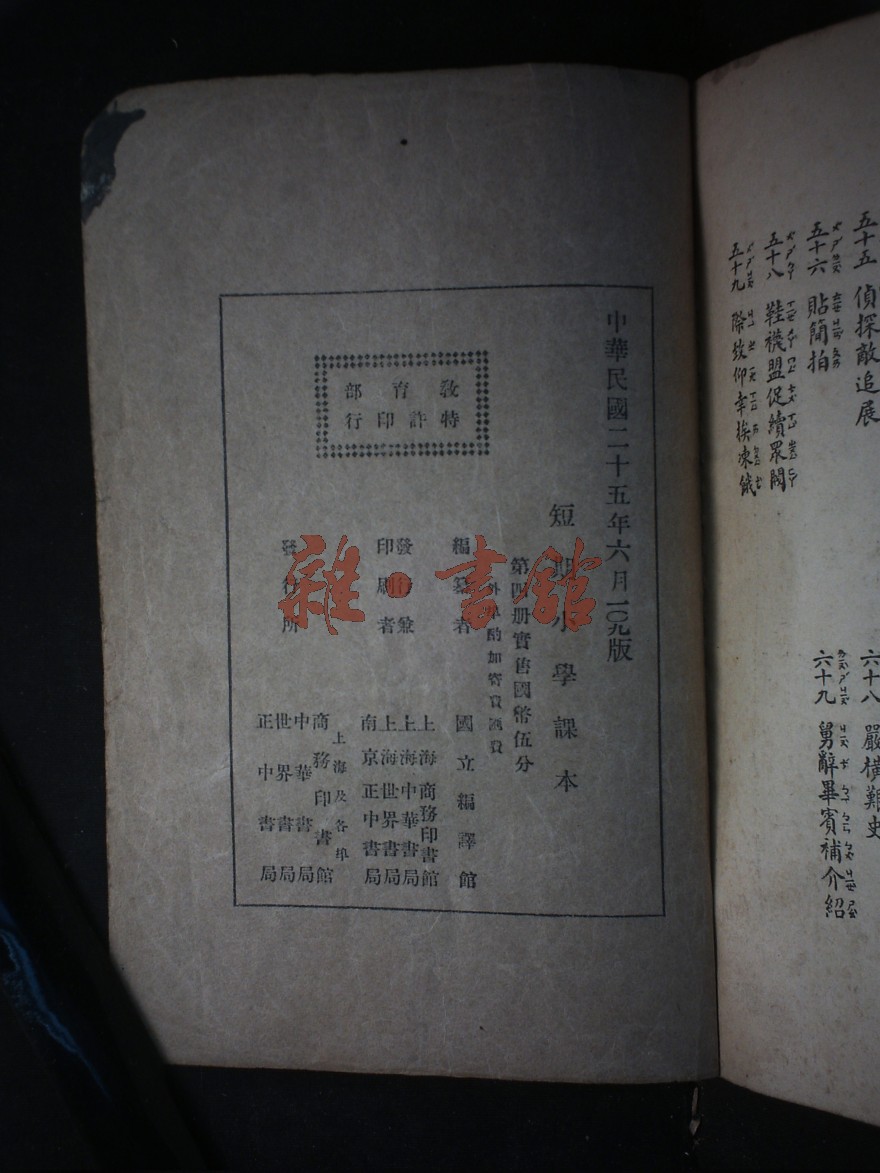 五十五 偵探敵追展
五十六 貼簡拍
五十八 鞋襪盟促續眾闊
五十九 際致仰幸挨凍餓
六十八 嚴橫難史
六十九 舅辭畢賓補介紹
中華民國二十五年六月一〇九版
短期小學課本
第四册實售國幣伍分
外埠酌加寄費匯費
教育部
特許印行
編纂者 國立編譯館
發行兼印刷者
上海商務印書館
上海中華書局
上海世界書局
南京正中書局
發行所
上海及各埠
商務印書館
中華書局
世界書局
正中書局
雜·書館